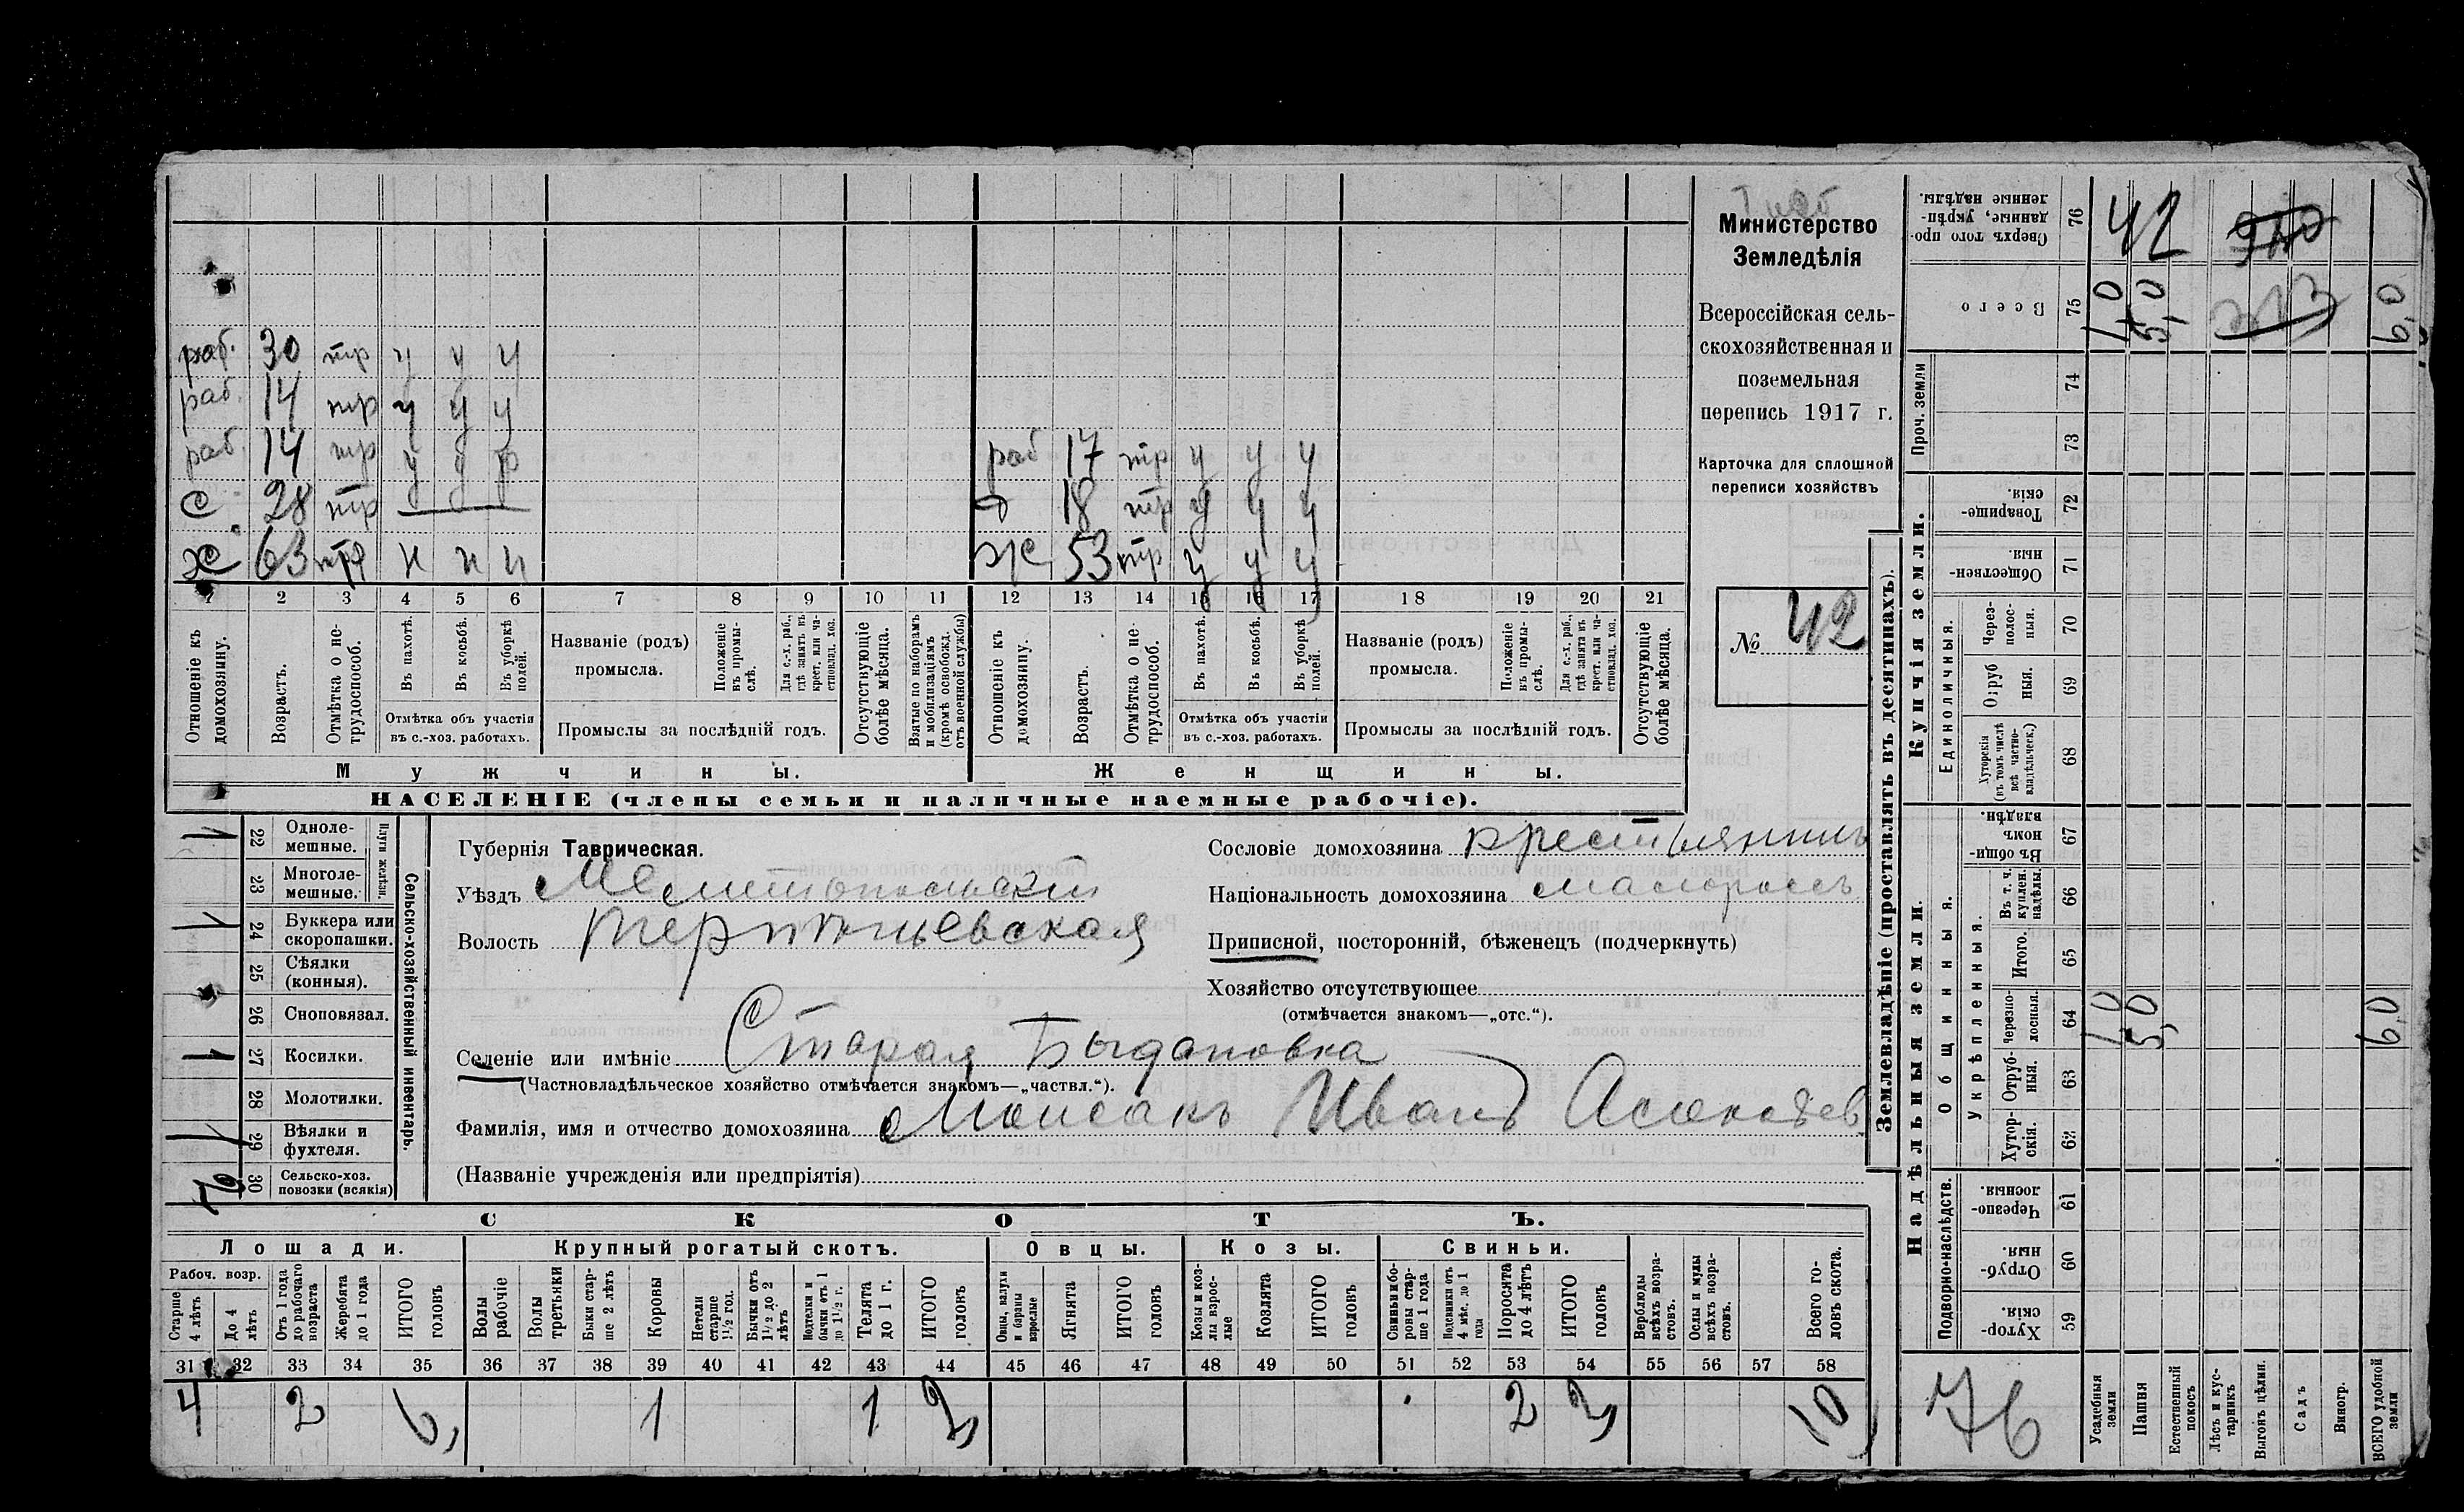 раб. 30 тр у у у
раб. 14 тр у у у
раб. 14 тр у у р
с 28 тр
х 63 тр н н н
раб 17 тр у у у
д 18 тр у у у
ж 53 тр у у у
1 2 3 4 5 6 7 8 9 10 11 12 13 14 15 16 17 18 19 20 21
Отношеніе къ домохозяину.
Возрастъ.
Отмѣтка о не-трудоспособ.
Въ пахотѣ.
Въ косьбѣ.
Въ уборкѣ полей.
Отмѣтка объ участіи
въ с.-хоз. работахъ.
Названіе (родъ)
промысла.
Положеніе въ промы-слѣ.
Для с.-х. раб., гдѣ занятъ въ крест. или ча-стновлад. хоз.
Промыслы за послѣдній годъ.
Отсутствующіе болѣе мѣсяца.
Взятые по наборамъ и мобилизаціямъ (кромѣ освобожд. отъ военной службы)
Отношеніе къ домохозяину.
Возрастъ.
Отмѣтка о не-трудоспособ.
Въ пахотѣ.
Въ косьбѣ.
Въ уборкѣ полей.
Отмѣтка объ участіи
въ с.-хоз. работахъ.
Названіе (родъ)
промысла.
Положеніе въ промы-слѣ.
Для с.-х. раб., гдѣ занята въ крест. или ча-стновлад. хоз.
Промыслы за послѣдній годъ.
Отсутствующіе болѣе мѣсяца.
Мужчины.
Женщины.
НАСЕЛЕНІЕ (члены семьи и наличные наемные рабочіе).
Министерство
Земледѣлія
Всероссійская сель-
скохозяйственная и
поземельная
перепись 1917 г.
Карточка для сплошной
переписи хозяйствъ
№ 42
Сельско-хозяйственный инвентарь.
Плуги желѣзн.
1 22 Одноле-мешные.
23 Многоле-мешные.
1 24 Буккера или скоропашки.
25 Сѣялки (конныя).
26 Сноповязал.
1 27 Косилки.
28 Молотилки.
1 29 Вѣялки и фухтеля.
30 Сельско-хоз. повозки (всякія)
Губернія Таврическая.
Уѣздъ Мелитопольскій
Волость Терпѣньевская
Селеніе или имѣніе Старая Быгдановка
(Частновладѣльческое хозяйство отмѣчается знакомъ—„частвл.“).
Фамилія, имя и отчество домохозяина Моисакъ Иванъ
(Названіе учрежденія или предпріятія)
Сословіе домохозяина крестьянинъ
Національность домохозяина малороссъ
Приписной, посторонній, бѣженецъ (подчеркнуть)
Хозяйство отсутствующее
(отмѣчается знакомъ—„отс.“).
СКОТЪ.
Лошади.
Крупный рогатый скотъ.
Овцы.
Козы.
Свиньи.
Рабоч. возр.
Старше 4 лѣтъ
До 4 лѣтъ
Отъ 1 года до рабочаго возраста
Жеребята до 1 года
ИТОГО головъ
Волы рабочіе
Волы третьяки
Быки стар-ше 2 лѣтъ
Коровы
Нетели старше 1½ год.
Бычки отъ 1½ до 2 лѣтъ
Подтелки и бычки отъ 1 до 1½ г.
Телята до 1 г.
ИТОГО головъ
Овцы, валухи и бараны взрослые
Ягнята
ИТОГО головъ
Козы и коз-лы взрос-лые
Козлята
ИТОГО головъ
Свиньи и бо-ровы стар-ше 1 года
Подсвинки отъ 4 мѣс. до 1 года
Поросята до 4 лѣтъ
ИТОГО головъ
Верблюды всѣхъ возра-стовъ.
Ослы и мулы всѣхъ возра-стовъ.
Всего го-ловъ скота.
31 32 33 34 35 36 37 38 39 40 41 42 43 44 45 46 47 48 49 50 51 52 53 54 55 56 57 58
4 2 6 1 1 2 2 2 10
Землевладѣніе (проставлять въ десятинахъ).
Надѣльныя земли.
Купчія земли.
Проч. земли
Подворно-наслѣдств.
Общинныя.
Укрѣпленныя.
Единоличныя.
Сверхъ того про-данные, укрѣп-ленные надѣлы. 76
Всего 75
74
73
Товарище-скія. 72
Обществен-ныя. 71
Через-полос-ныя. 70
Отруб-ныя. 69
Хуторскія (въ томъ числѣ всѣ частно-владѣльческ.) 68
Въ общи-номъ владѣн. 67
Въ т. ч. куплен. надѣлы. 66
Итого. 65
Черезпо-лосныя. 64
Отруб-ныя. 63
Хутор-скія. 62
Черезпо-лосныя. 61
Отруб-ныя. 60
Хутор-скія. 59
42
1,0 5,0 213 6,0
1,0 5,0 6,0
76
Усадебныя земли
Пашня
Естественный покосъ
Лѣсъ и кус-тарникъ
Выгонъ цѣлин.
Садъ
Виногр.
ВСЕГО удобной земли